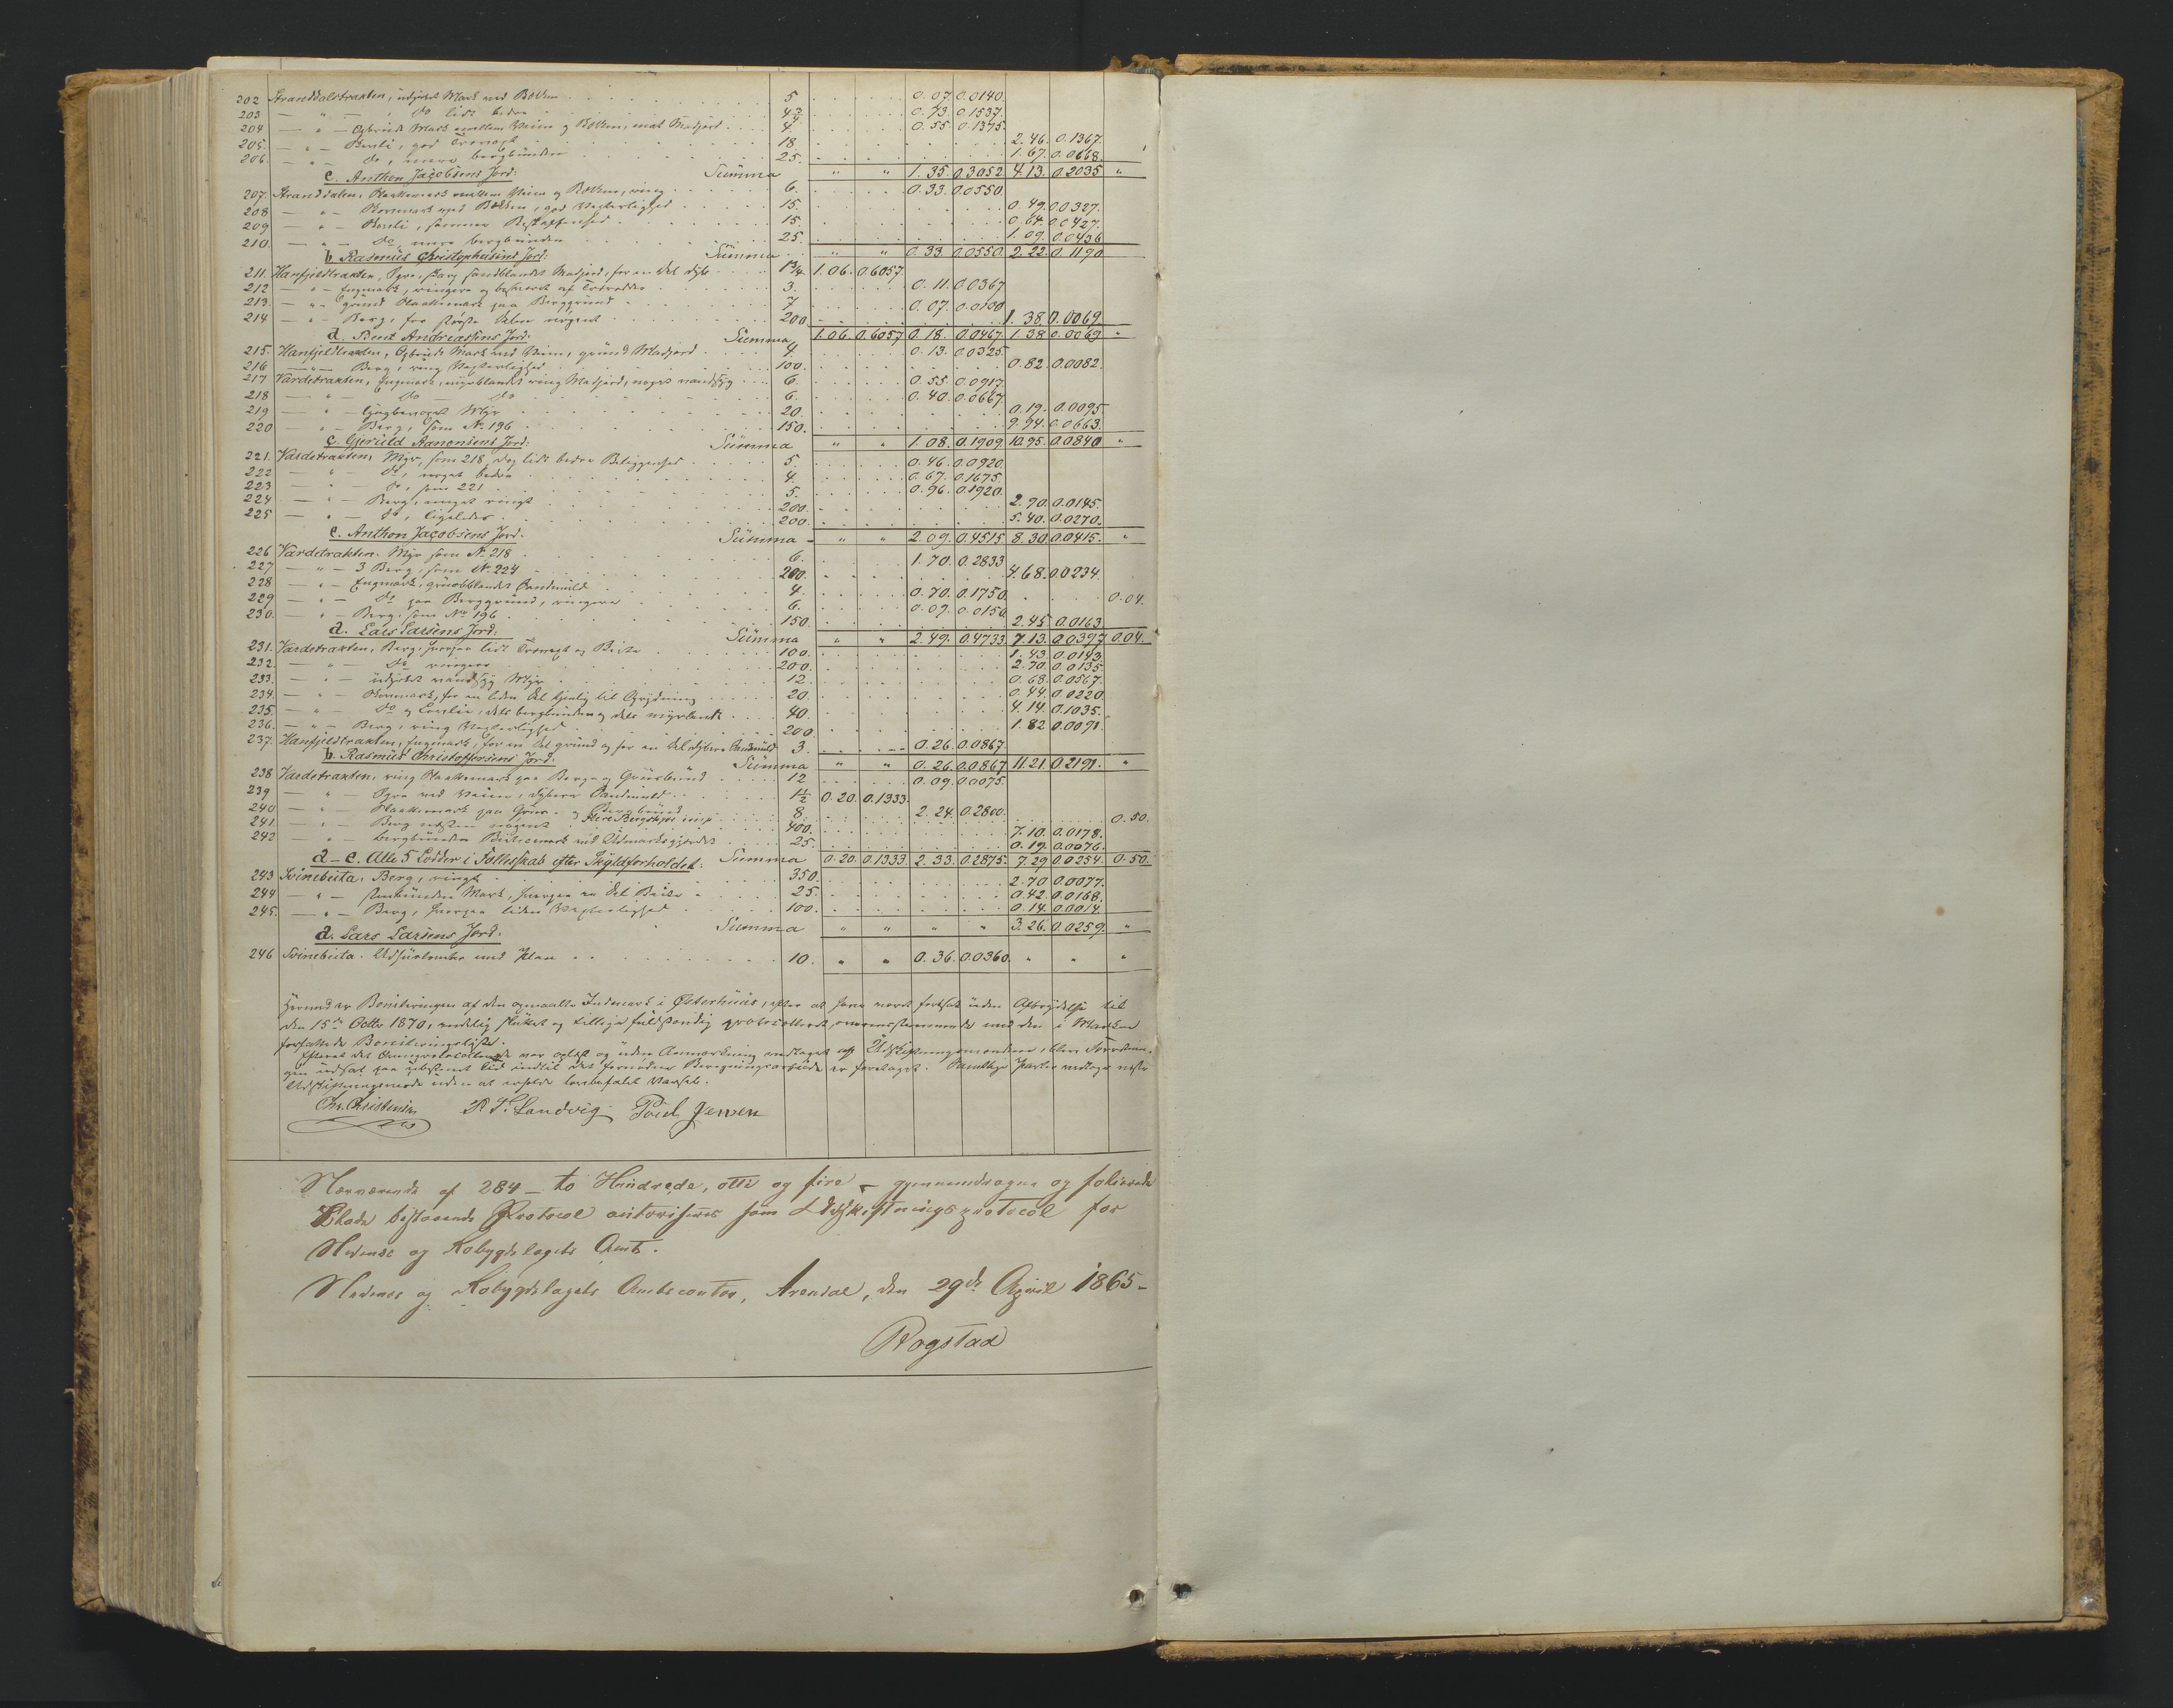 202 Stranddalstrakten, udyrket Mark ved Bækken 5 0.07. 0.0140.
203 — " — do lidt bedre 4¾ 0.73. 0.1537.
204 — " — Opbrudt Mark mellem Veien og Bækken, mat Madjord 4. 0.55. 0.1375.
205. — " — Bærli, god 18. 2.46. 0.1367.
206. — " — do, mere bergbunden 25. 1.67. 0.0668.
c. Anthon Jacobsens Jord: Summa " " 1.35. 0.3052 4.13. 0.2035 "
207. Stranddalen, Hakkemark mellem Veien og Bækken, ring 6. 0.33. 0.0550
208 — " — Havnmark ved Bækken, god Væxterlighed 15. 0.49. 0.0327.
209 — " — Bærli, samme Beskaffenhed 15. 0.64. 0.0427.
210. — " — do, mere bergbunden 25. 1.09. 0.0436
b. Rasmus Christophersens Jord: Summa " " 0.33. 0.0550. 2.22. 0.1190
211. Hanfjeldtrakten, Ager, skarp sandblandet Madjord, for en del dyb 1¾ 1.06. 0.6057.
212 — " — Engmark, ringere og beskaaret af Trærødder 3. 0.11. 0.0367
213. — " — grund Hakkemark paa Berggrund 7 0.07. 0.0100
214 — " — Berg, for største Delen nøgent 200 1.38. 0.0069
d. Bent Andreassens Jord: Summa 1.06. 0.6057 0.18. 0.0467. 1.38 0.0069 "
215. Hanfjeldtrakten, Opbrudt Mark ved Veien, grund Madjord 4. 0.13. 0.0325.
216 — " — Berg, ring Væxterlighed 100. 0.82. 0.0082.
217 Vardetrakten, Engmark, myrblandet ring Madjord, noget vandsyg 6. 0.55. 0.0917.
218 — " — do — do 6. 0.40. 0.0667.
219 — " — Myr 20. 0.19. 0.0095.
220 — " — Berg, som No 196 150. 9.94. 0.0663.
c. Gjeruld Aanonsens Jord: Summa " " 1.08. 0.1909. 10.95. 0.0840 "
221. Vardetrakten, Myr, som 218, dog lidt bedre Beliggenhed 5. 0.46. 0.0920.
222 — " — do, noget bedre 4. 0.67. 0.1675.
223 — " — do, som 221 5. 0.96. 0.1920.
224 — " — Berg, meget ringt 200. 2.90. 0.0145.
225 — " — do, ligeledes 200. 5.40. 0.0270.
e. Anthon Jacobsens Jord: Summa " " 2.09. 0.4515. 8.30. 0.0415. "
226 Vardetrakten. Myr som No 218 6. 1.70. 0.2833
227 — " — 3 Berg, som No 224 200. 4.68. 0.0234.
228 — " — Engmark, gruusblandet Sandmuld 4. 0.70. 0.1750. 0.04.
229 — " — do paa Berggrund, ringere 6. 0.09. 0.0150
230. — " — Berg, som No 196 150. 2.45. 0.0163.
a. Lars Larsens Jord: Summa " " 2.49. 0.4733. 7.13. 0.0397 0.04.
231. Vardetrakten, Berg, hvorpaa lidt Trævext og Beite 100. 1.43. 0.0143.
232. — " — do ringere 200. 2.70. 0.0135.
233. — " — udyrket vandsyg Myr 12. 0.68. 0.0567.
234. — " — Havnmark, for en liden Del tjenlig til Oprydning 20. 0.44. 0.0220.
235. — " — do og Lovlie, dels bergbunden og dels myrlændt 40. 4.14. 0.1035.
236. — " — Berg, ring Væxterlighed 200. 1.82 0.0091.
237. Hanfjeldtrakten, Engmark, for en Del grund og for en Del dybere Sandmuld 3. 0.26. 0.0867.
b. Rasmus Christoffersens Jord: Summa " " 0.26. 0.0867. 11.21. 0.2191. "
238 Vardetrakten, ring Hakkemark paa Berg- og Gruusbund 12 0.09. 0.0075.
239 — " — Ager ved Veien, dybere Sandmuld 1½ 0.20. 0.1333.
240 — " — Hakkemark paa Gruus- og Bergbund 8. 2.24. 0.2800. 0.50.
241. — " — Berg næsten nøgent 400. 7.10. 0.0178.
242 — " — bergbunden Beitemark ved Udmarksgjerdet 25. 0.19. 0.0076.
a–e. Alle 5 Lodder i Fællesskab efter Skyldforholdet: Summa 0.20. 0.1333. 2.33. 0.2875. 7.29 0.0254. 0.50.
243 Svinebuta, Berg, ringt 350. 2.70 0.0077.
244 — " — stenbunden Mark, hvorpaa en Del Beite 25. 0.42. 0.0168.
245. — " — Berg, hvorpaa liden Væxterlighed 100. 0.14. 0.0014
a. Lars Larsens Jord: Summa " " " " 3.26. 0.0259. "
246 Svinebuta. 10. " " 0.36. 0.0360. " " "
Hermed er Boniteringen af den opmaalte Indmark i Østerhuus, efter at have været fortsat uden Afbrydelse til
den 15de Octbr 1870, endelig sluttet og tillige fuldstændig protocolleret, overensstemmende med den i Marken
forfattede Boniteringsliste.
Efterat det var oplæst og uden Anmærkning vedtaget af Udskiftningsmændene, blev Forretnin-
gen udsat paa ubestemt Tid indtil det fornødne Beregningsarbeide er foretaget. Samtlige Parter vedtager næste
Udskiftningsmøde uden at erholde lovbefalet Varsel.
Chr. Christensen P. T. Sandvig Poul Jensen
Nærværende af 284 – to Hundrede, otti og fire – gjennemdragne og folierede
Blade bestaaende Protocol autoriseres som Udskiftningsprotocol for
Nedenæs og Robygdelagets Amt.
Nedenæs og Robygdelagets Amtscontor, Arendal, den 29de April 1865 –
Rogstad